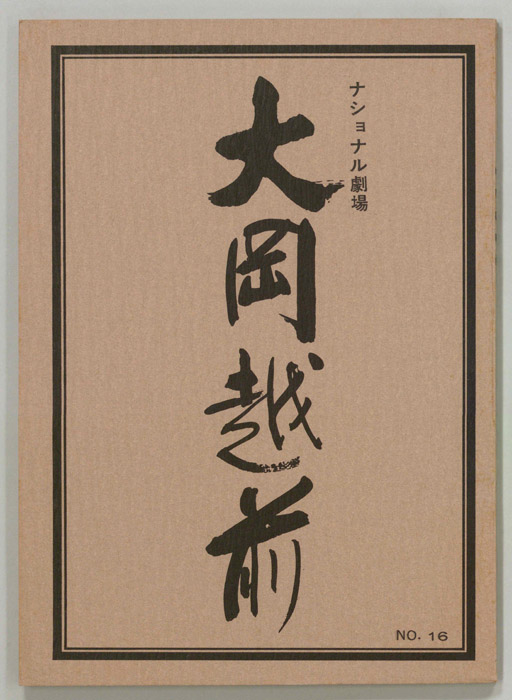 ナショナル劇場
大岡越前
NO. 16